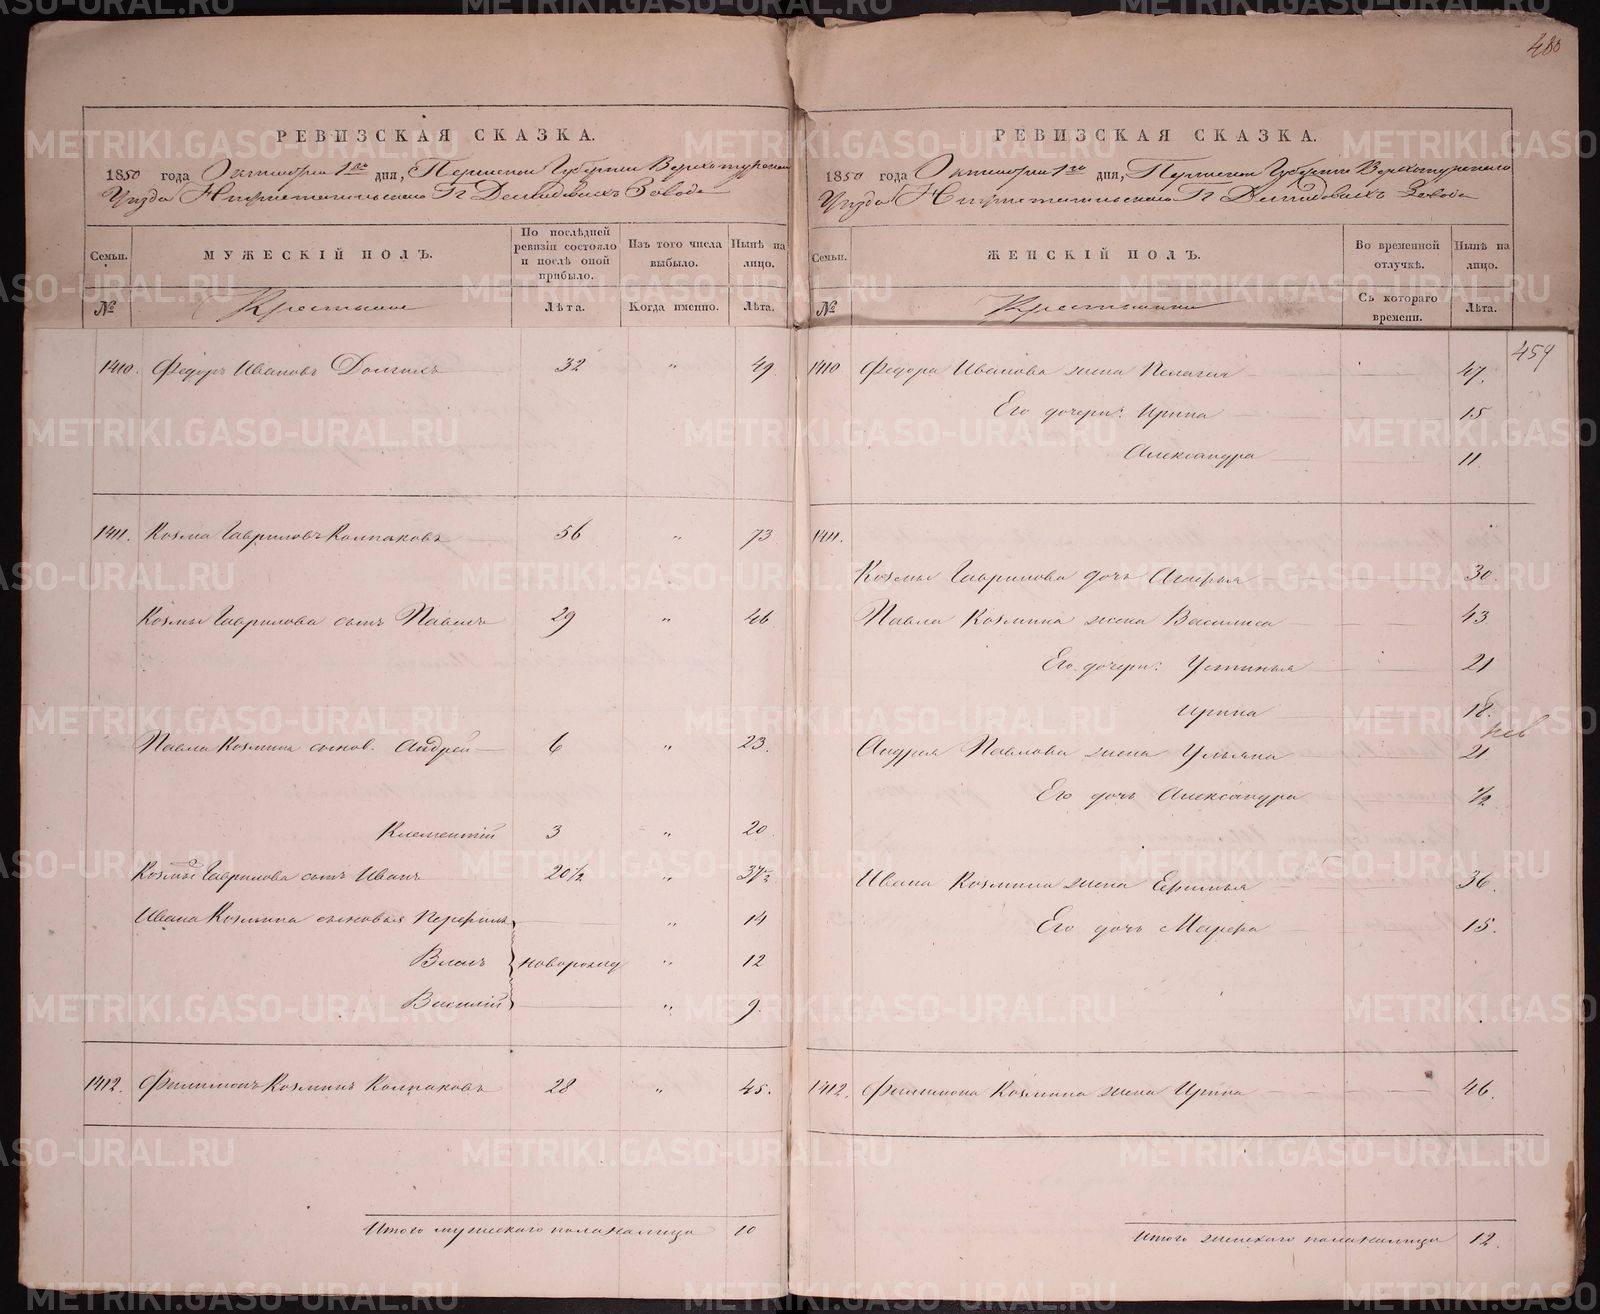 480
РЕВИЗСКАЯ СКАЗКА.
1850 года Октября 1го дня, Пермской Губернии Верхотурскаго
Уезда Нижнетагильскаго Гг Демидовыхъ Завода
Семьи. МУЖЕСКІЙ ПОЛЪ. По послѣдней ревизіи состояло и послѣ оной прибыло. Изъ того числа выбыло. Нынѣ на лицо.
№ Крестьяне Лѣта. Когда именно. Лѣта.
1410. Федоръ Ивановъ 32 " 49
1411. Козма Гавриловъ Колпаковъ 56 " 73
Козмы Гаврилова сынъ Павелъ 29 " 46
Павла Козмина сынов. Андрей 6 " 23.
Клементій 3 " 20.
Козмы Гаврилова сынъ Иванъ 20 1/2 " 37 1/2
Ивана Козмина сыновья Перфилъ " 14
Власъ новорожд " 12
Василій " 9.
1412. Филимонъ Козминъ Колпаковъ 28 " 45.
Итого мужескаго пола налицо 10
РЕВИЗСКАЯ СКАЗКА.
1850 года Октября 1го дня, Пермской Губерніи Верхотурскаго
Уезда Нижнетагильскаго Гг Демидовыхъ Завода
Семьи. ЖЕНСКІЙ ПОЛЪ. Во временной отлучкѣ. Нынѣ на лицо.
№ Крестьянки Съ котораго времени. Лѣта.
459
1410 Федора Иванова жена Пелагея 47.
Его дочери: Ирина 15
Александра 11.
1411.
Козмы Гаврилова дочь Агафья 30.
Павла Козмина жена Василиса 43
Его дочери: Устинья 21
Ирина 18.
Андрея Павлова жена Ульяна 21
Его дочь Александра 1/2
Ивана Козмина жена Ефимья 36.
Его дочь Марфа 15.
1412. Филимона Козмина жена Ирина 46.
Итого женскаго пола налицо 12.
METRIKI.GASO-URAL.RU